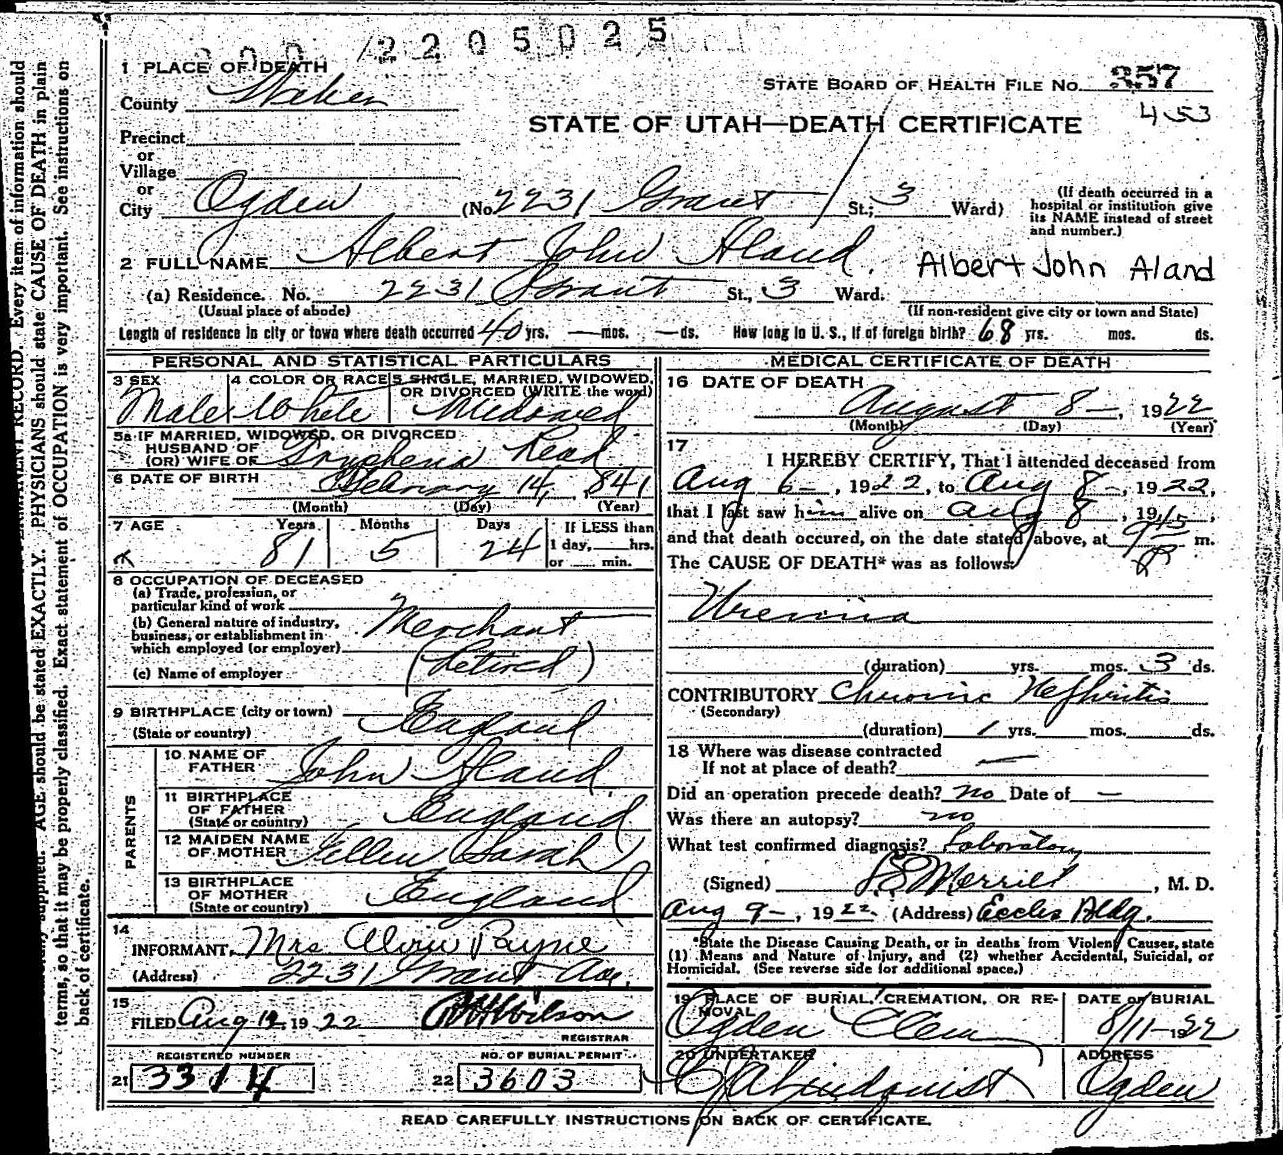 2205025
1 PLACE OF DEATH
County Weber
STATE BOARD OF HEALTH FILE NO. 357
453
STATE OF UTAH—DEATH CERTIFICATE
Precinct
or
Village
or
City Ogden (No. 2231 Grant St.; 3 Ward)
(If death occurred in a hospital or institution give its NAME instead of street and number.)
2 FULL NAME Albert John Aland. Albert John Aland
(a) Residence. No. 2231 Grant St., 3 Ward.
(Usual place of abode) (If non-resident give city or town and State)
Length of residence in city or town where death occurred 40 yrs. — mos. — ds. How long in U. S., if of foreign birth? 68 yrs. mos. ds.
PERSONAL AND STATISTICAL PARTICULARS
3 SEX Male
4 COLOR OR RACE White
5 SINGLE, MARRIED, WIDOWED, OR DIVORCED (WRITE the word) Widowed
5a IF MARRIED, WIDOWED, OR DIVORCED
HUSBAND OF
(OR) WIFE OF Tryphena Read
6 DATE OF BIRTH February 14, 1841
(Month) (Day) (Year)
7 AGE Years Months Days If LESS than
81 5 24 1 day, hrs.
or min.
8 OCCUPATION OF DECEASED
(a) Trade, profession, or
particular kind of work
(b) General nature of industry,
business, or establishment in
which employed (or employer) Merchant
(c) Name of employer (Retired)
9 BIRTHPLACE (city or town)
(State or country) England
PARENTS
10 NAME OF
FATHER John Aland
11 BIRTHPLACE
OF FATHER
(State or country) England
12 MAIDEN NAME
OF MOTHER Ellen Sarah
13 BIRTHPLACE
OF MOTHER
(State or country) England
14
INFORMANT Mrs Alvin Payne
(Address) 2231 Grant Ave.
15
FILED Aug 12, 1922 Wilson
REGISTRAR
REGISTERED NUMBER
21 3314
NO. OF BURIAL PERMIT
22 3603
MEDICAL CERTIFICATE OF DEATH
16 DATE OF DEATH
August 8—, 1922
(Month) (Day) (Year)
17
I HEREBY CERTIFY, That I attended deceased from
Aug 6—, 1922, to Aug 8—, 1922,
that I last saw him alive on Aug 8, 19
and that death occured, on the date stated above, at 9 15 P m.
The CAUSE OF DEATH* was as follows:
Uremia
(duration) yrs. mos. 3 ds.
CONTRIBUTORY Chronic Nephritis
(Secondary)
(duration) 1 yrs. mos. ds.
18 Where was disease contracted
If not at place of death? —
Did an operation precede death? no Date of —
Was there an autopsy? no
What test confirmed diagnosis? Laboratory
(Signed) Merrill, M. D.
Aug 9—, 1922 (Address) Eccles Bldg.
*State the Disease Causing Death, or in deaths from Violent Causes, state
(1) Means and Nature of Injury, and (2) whether Accidental, Suicidal, or
Homicidal. (See reverse side for additional space.)
19 PLACE OF BURIAL, CREMATION, OR REMOVAL
Ogden Cem
DATE OF BURIAL
8/11—1922
20 UNDERTAKER
Lindquist
ADDRESS
Ogden
READ CAREFULLY INSTRUCTIONS ON BACK OF CERTIFICATE.
PERMANENT RECORD. Every item of information should
supplied. AGE should be stated EXACTLY. PHYSICIANS should state CAUSE OF DEATH in plain
terms, so that it may be properly classified. Exact statement of OCCUPATION is very important. See instructions on
back of certificate.